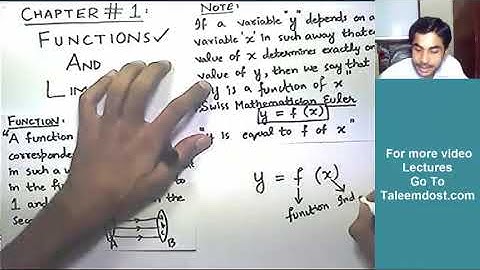 CHAPTER # 1:
FUNCTIONS ✓
AND
LIM
FUNCTION:
"A function
correspondenc
in such a w
in the fi
1 and
Seco
to
the
A
B
a
b
c
NOTE:
If a variable "y" depends on a
variable "x" in such away that e
value of x determines exactly on
value of y, then we say that
"y is a function of x"
Swiss Mathematician Euler
y = f (x)
"y is equal to f of x"
y = f (x)
function
Ind
For more video
Lectures
Go To
Taleemdost.com